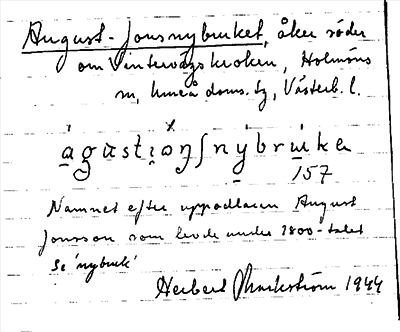 August-Jonsnybruket, åker söder
om Vintervägskroken, Holmöns
sn, Umeå doms. tg, Västerb. l.
agustiønʃnybruke
157
Namnet efter uppodlaren August
Jonsson som levde under 1800-talet
Se 'nybruk'
Herbert Markström 1944